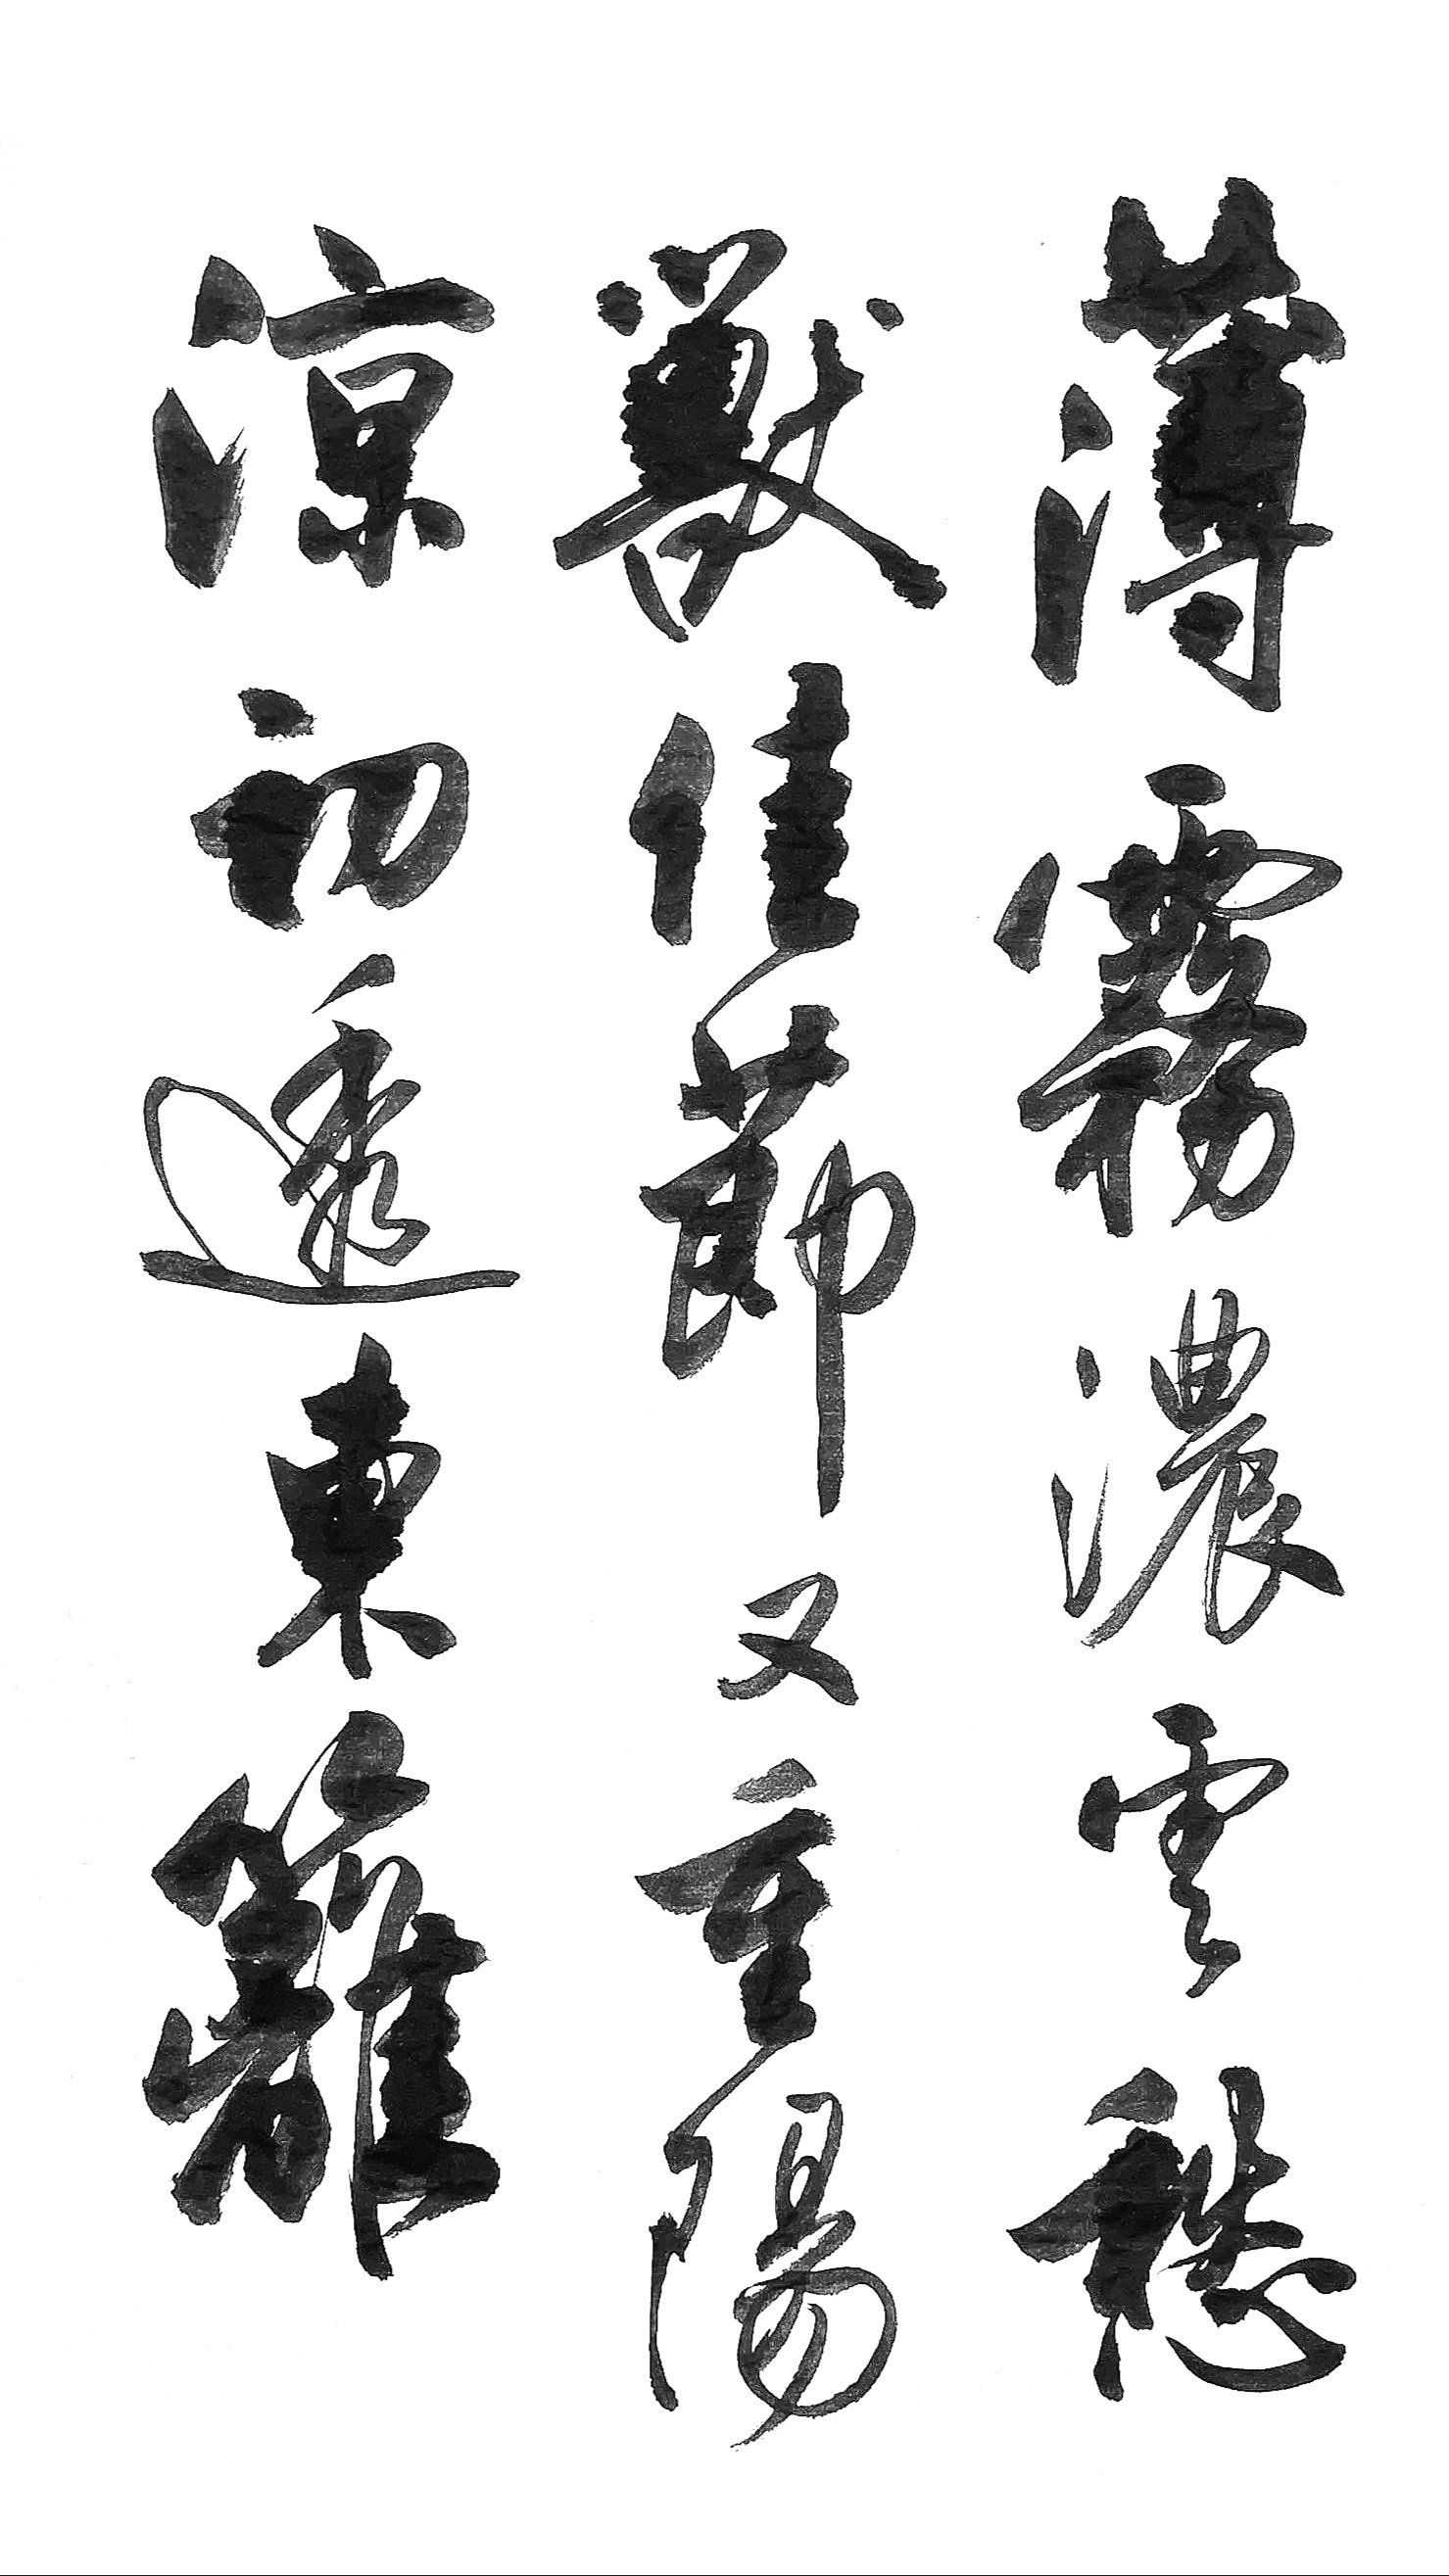 薄霧濃雲愁
獸佳節又重陽
涼初透東籬